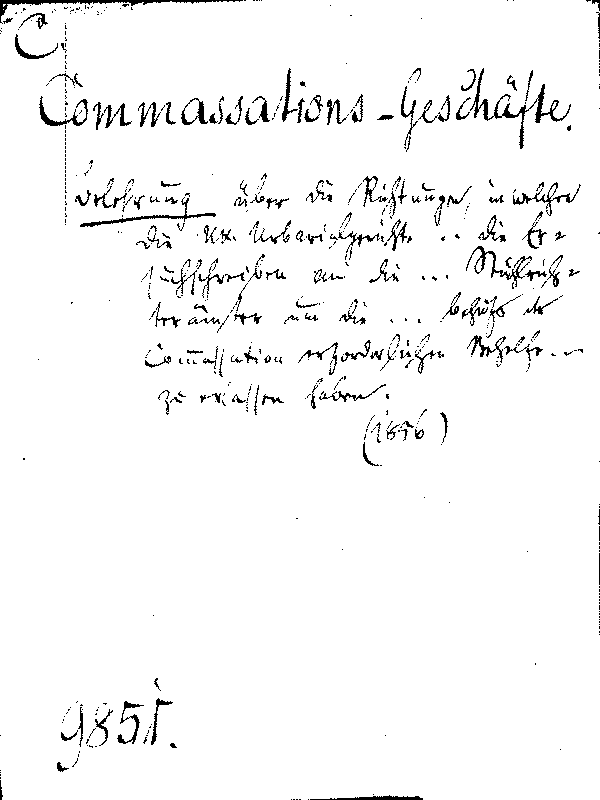 C.
Commassations-Geschäfte.
Belehrung über die Richtungen, in welchen
die kk. Urbarialgerichte .. die Er=
suchschreiben an die ... Stuhlrich=
terämter um die ... behufs der
Commassation erforderlichen Behelfe ...
zu erlassen haben.
(1856)
9851.